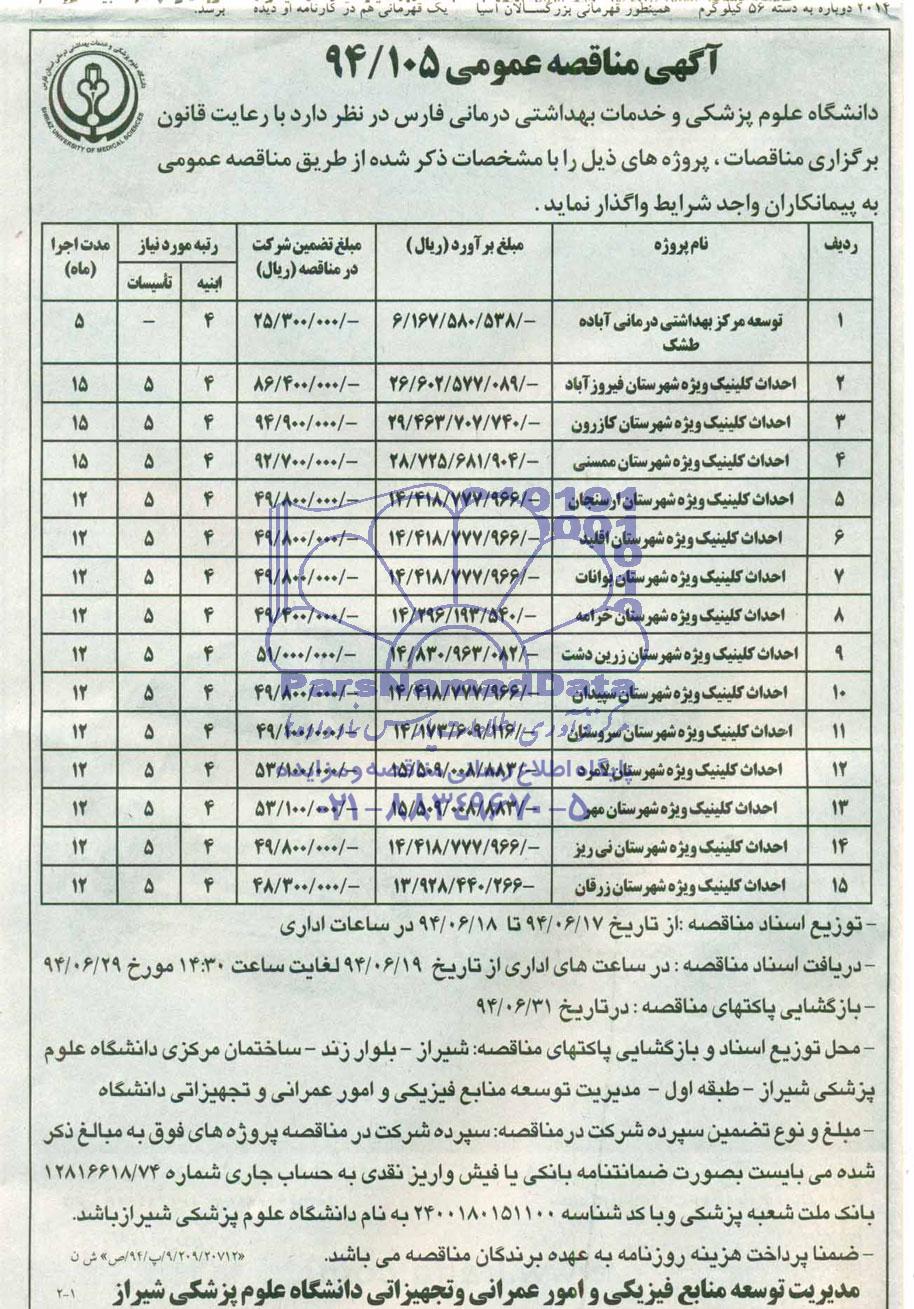 ۲۰۱۴ دوباره به دسته ۵۶ کیلوگرم همینطور قهرمانی بزرگسالان آسیا یک قهرمانی هم در کارنامه او دیده برسد.
SHIRAZ UNIVERSITY OF MEDICAL SCIENCES
آگهی مناقصه عمومی ۹۴/۱۰۵
دانشگاه علوم پزشکی و خدمات بهداشتی درمانی فارس در نظر دارد با رعایت قانون
برگزاری مناقصات، پروژه های ذیل را با مشخصات ذکر شده از طریق مناقصه عمومی
به پیمانکاران واجد شرایط واگذار نماید.
ردیف نام پروژه مبلغ برآورد (ریال) مبلغ تضمین شرکت در مناقصه (ریال) رتبه مورد نیاز مدت اجرا (ماه)
ابنیه تأسیسات
۱ توسعه مرکز بهداشتی درمانی آباده طشک ۶/۱۶۷/۵۸۰/۵۳۸/- ۲۵/۳۰۰/۰۰۰/- ۴ - ۵
۲ احداث کلینیک ویژه شهرستان فیروزآباد ۲۶/۶۰۲/۵۷۷/۰۸۹/- ۸۶/۴۰۰/۰۰۰/- ۴ ۵ ۱۵
۳ احداث کلینیک ویژه شهرستان کازرون ۲۹/۴۶۳/۷۰۷/۷۴۰/- ۹۴/۹۰۰/۰۰۰/- ۴ ۵ ۱۵
۴ احداث کلینیک ویژه شهرستان ممسنی ۲۸/۷۲۵/۶۸۱/۹۰۴/- ۹۲/۷۰۰/۰۰۰/- ۴ ۵ ۱۵
۵ احداث کلینیک ویژه شهرستان ارسنجان ۱۴/۴۱۸/۷۷۷/۹۶۶/- ۴۹/۸۰۰/۰۰۰/- ۴ ۵ ۱۲
۶ احداث کلینیک ویژه شهرستان اقلید ۱۴/۴۱۸/۷۷۷/۹۶۶/- ۴۹/۸۰۰/۰۰۰/- ۴ ۵ ۱۲
۷ احداث کلینیک ویژه شهرستان بوانات ۱۴/۴۱۸/۷۷۷/۹۶۶/- ۴۹/۸۰۰/۰۰۰/- ۴ ۵ ۱۲
۸ احداث کلینیک ویژه شهرستان خرامه ۱۴/۲۹۶/۱۹۳/۵۴۰/- ۴۹/۴۰۰/۰۰۰/- ۴ ۵ ۱۲
۹ احداث کلینیک ویژه شهرستان زرین دشت ۱۴/۸۳۰/۹۶۳/۰۸۲/- ۵۱/۰۰۰/۰۰۰/- ۴ ۵ ۱۲
۱۰ احداث کلینیک ویژه شهرستان سپیدان ۱۴/۴۱۸/۷۷۷/۹۶۶/- ۴۹/۸۰۰/۰۰۰/- ۴ ۵ ۱۲
۱۱ احداث کلینیک ویژه شهرستان سروستان ۱۴/۱۷۳/۶۰۹/۱۱۶/- ۴۹/۱۰۰/۰۰۰/- ۴ ۵ ۱۲
۱۲ احداث کلینیک ویژه شهرستان لامرد ۱۵/۵۰۹/۰۰۸/۸۸۳/- ۵۳/۱۰۰/۰۰۰/- ۴ ۵ ۱۲
۱۳ احداث کلینیک ویژه شهرستان مهر ۱۵/۵۰۹/۰۰۸/۸۸۳/- ۵۳/۱۰۰/۰۰۰/- ۴ ۵ ۱۲
۱۴ احداث کلینیک ویژه شهرستان نی ریز ۱۴/۴۱۸/۷۷۷/۹۶۶/- ۴۹/۸۰۰/۰۰۰/- ۴ ۵ ۱۲
۱۵ احداث کلینیک ویژه شهرستان زرقان ۱۳/۹۲۸/۴۴۰/۲۶۶- ۴۸/۳۰۰/۰۰۰/- ۴ ۵ ۱۲
ParsNamadData
پایگاه اطلاع رسانی مناقصه و مزایده
۰۲۱-۸۸۳۴۹۶۷۰-۵
- توزیع اسناد مناقصه :از تاریخ ۹۴/۰۶/۱۷ تا ۹۴/۰۶/۱۸ در ساعات اداری
- دریافت اسناد مناقصه : در ساعت های اداری از تاریخ ۹۴/۰۶/۱۹ لغایت ساعت ۱۴:۳۰ مورخ ۹۴/۰۶/۲۹
- بازگشایی پاکتهای مناقصه : درتاریخ ۹۴/۰۶/۳۱
- محل توزیع اسناد و بازگشایی پاکتهای مناقصه: شیراز - بلوار زند - ساختمان مرکزی دانشگاه علوم
پزشکی شیراز - طبقه اول - مدیریت توسعه منابع فیزیکی و امور عمرانی و تجهیزاتی دانشگاه
- مبلغ و نوع تضمین سپرده شرکت درمناقصه: سپرده شرکت در مناقصه پروژه های فوق به مبالغ ذکر
شده می بایست بصورت ضمانتنامه بانکی یا فیش واریز نقدی به حساب جاری شماره ۱۲۸۱۶۶۱۸/۷۴
بانک ملت شعبه پزشکی وبا کد شناسه ۲۴۰۰۱۸۰۱۵۱۱۰۰ به نام دانشگاه علوم پزشکی شیرازباشد.
- ضمنا پرداخت هزینه روزنامه به عهده برندگان مناقصه می باشد. «۹/۲۰۹/۲۰۷۱۲/پ/۹۴/ص» ش ن
مدیریت توسعه منابع فیزیکی و امور عمرانی وتجهیزاتی دانشگاه علوم پزشکی شیراز ۲-۱